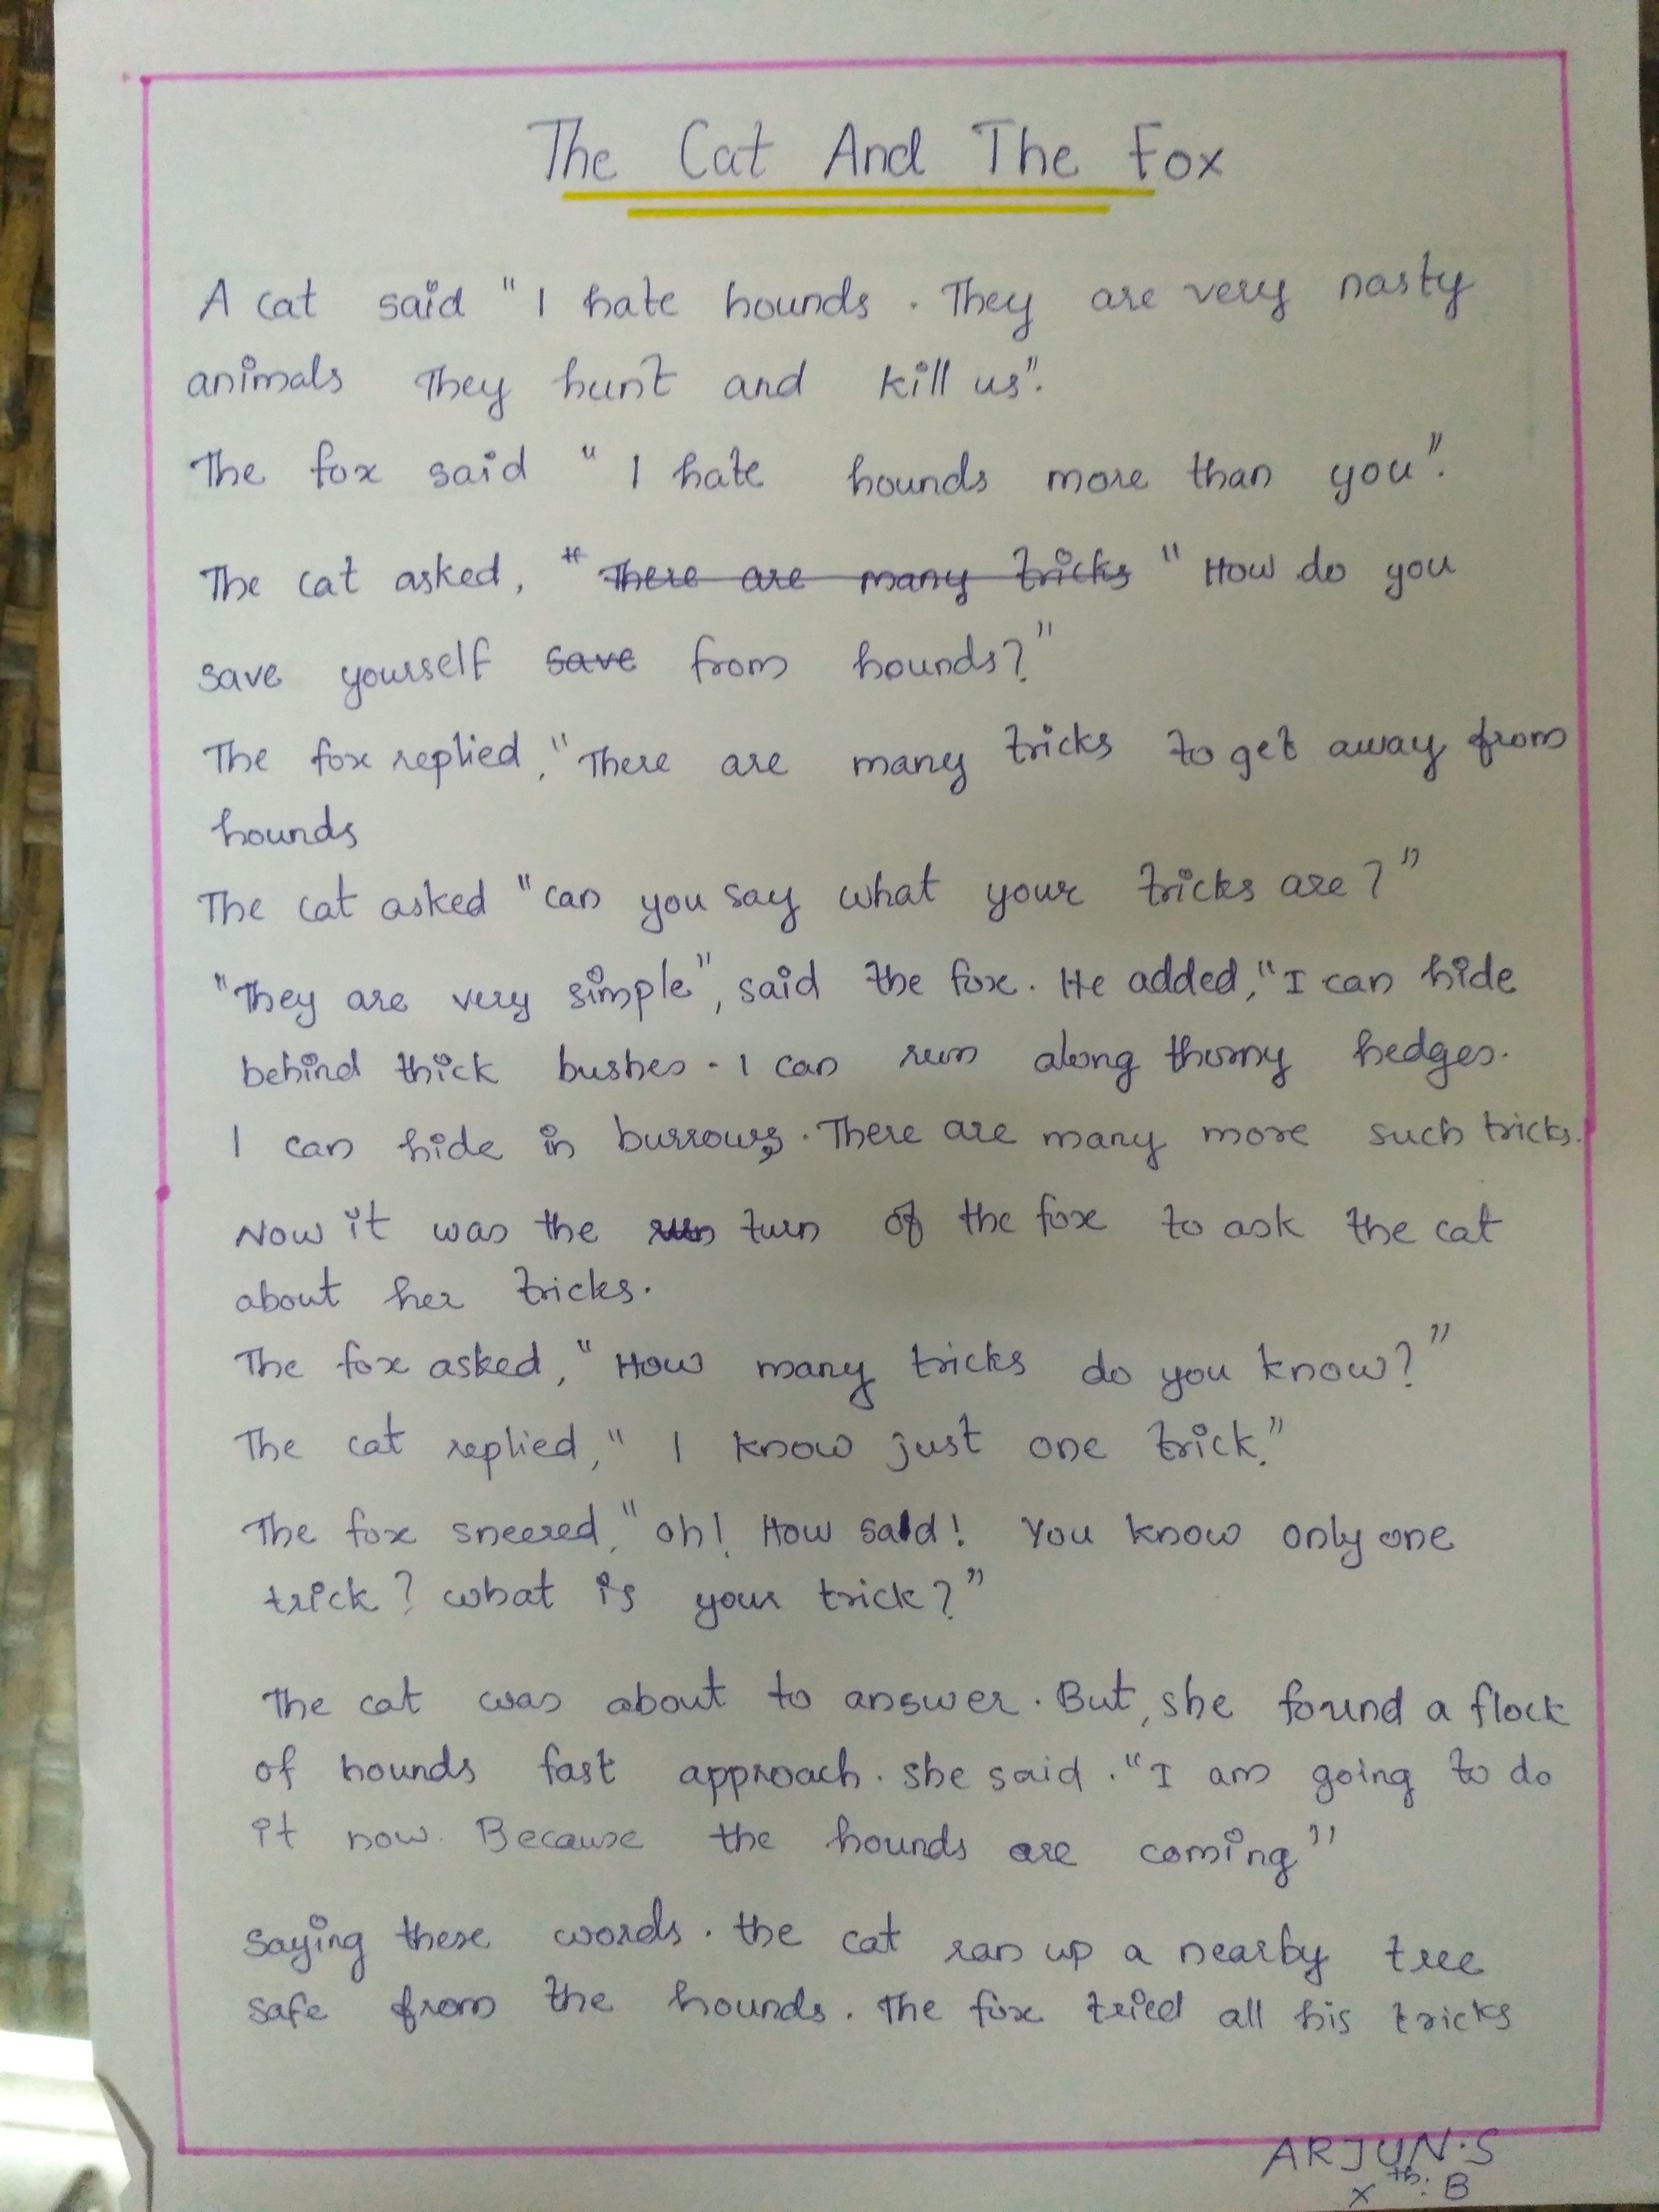 The Cat And The Fox
A cat said " I hate hounds . They are very nasty
animals They hunt and kill us".
The fox said " I hate hounds more than you".
The cat asked, " There are many tricks " How do you
save yourself save from hounds?"
The fox replied, "There are many tricks to get away from
hounds
The cat asked "can you say what your tricks are ? "
"They are very simple", said the fox. He added, "I can hide
behind thick bushes . I can run along thorny hedges.
I can hide in burrows. There are many more such tricks.
Now it was the run turn of the fox to ask the cat
about her tricks.
The fox asked, " How many tricks do you know? "
The cat replied, " I know just one trick."
The fox sneered, " oh! How sad! You know only one
trick ? what is your trick ? "
The cat was about to answer . But, she found a flock
of hounds fast approach. she said . "I am going to do
it now. Because the hounds are coming "
saying these words . the cat ran up a nearby tree
safe from the hounds . The fox tried all his tricks
ARJUN.S
X th: B